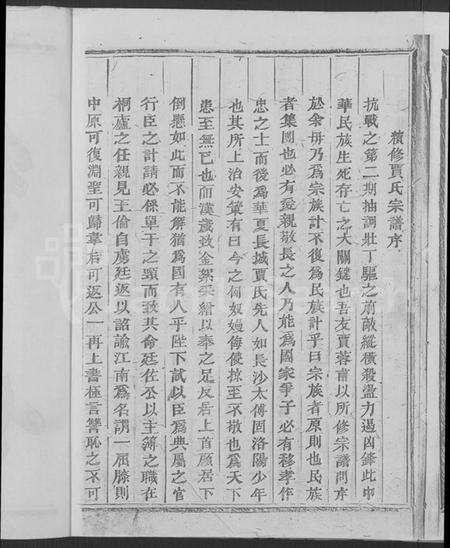 續修賈氏宗譜序
抗戰之第二期抽調壯丁驅之前敵縱橫殺盪力遏凶鋒此中
華民族生死存亡之大關鍵也吾友賈蓉甫以所修宗譜問序
於余毋乃為宗族計不復為民族計乎曰宗族者原則也民族
者集團也必有愛親敬長之人乃能為國家爭子必有移孝作
忠之士而後為華夏長城賈氏先人如長沙太傅固洛陽少年
也其所上治安策有曰今之匈奴嫚侮侵掠至不敬也為天下
患至無已也而漢歲致金絮采繒以奉之足反居上首顧居下
倒懸如此而不能解猶為國有人乎陛下試以臣為典屬之官
行臣之計請必係單于之頸而致其命廷佐公以主簿之職在
桐廬之任親見王倫自虜廷返以詔諭江南為名謂一屈膝則
中原可復淵聖可歸韋后可返公一再上書極言讐恥之不可